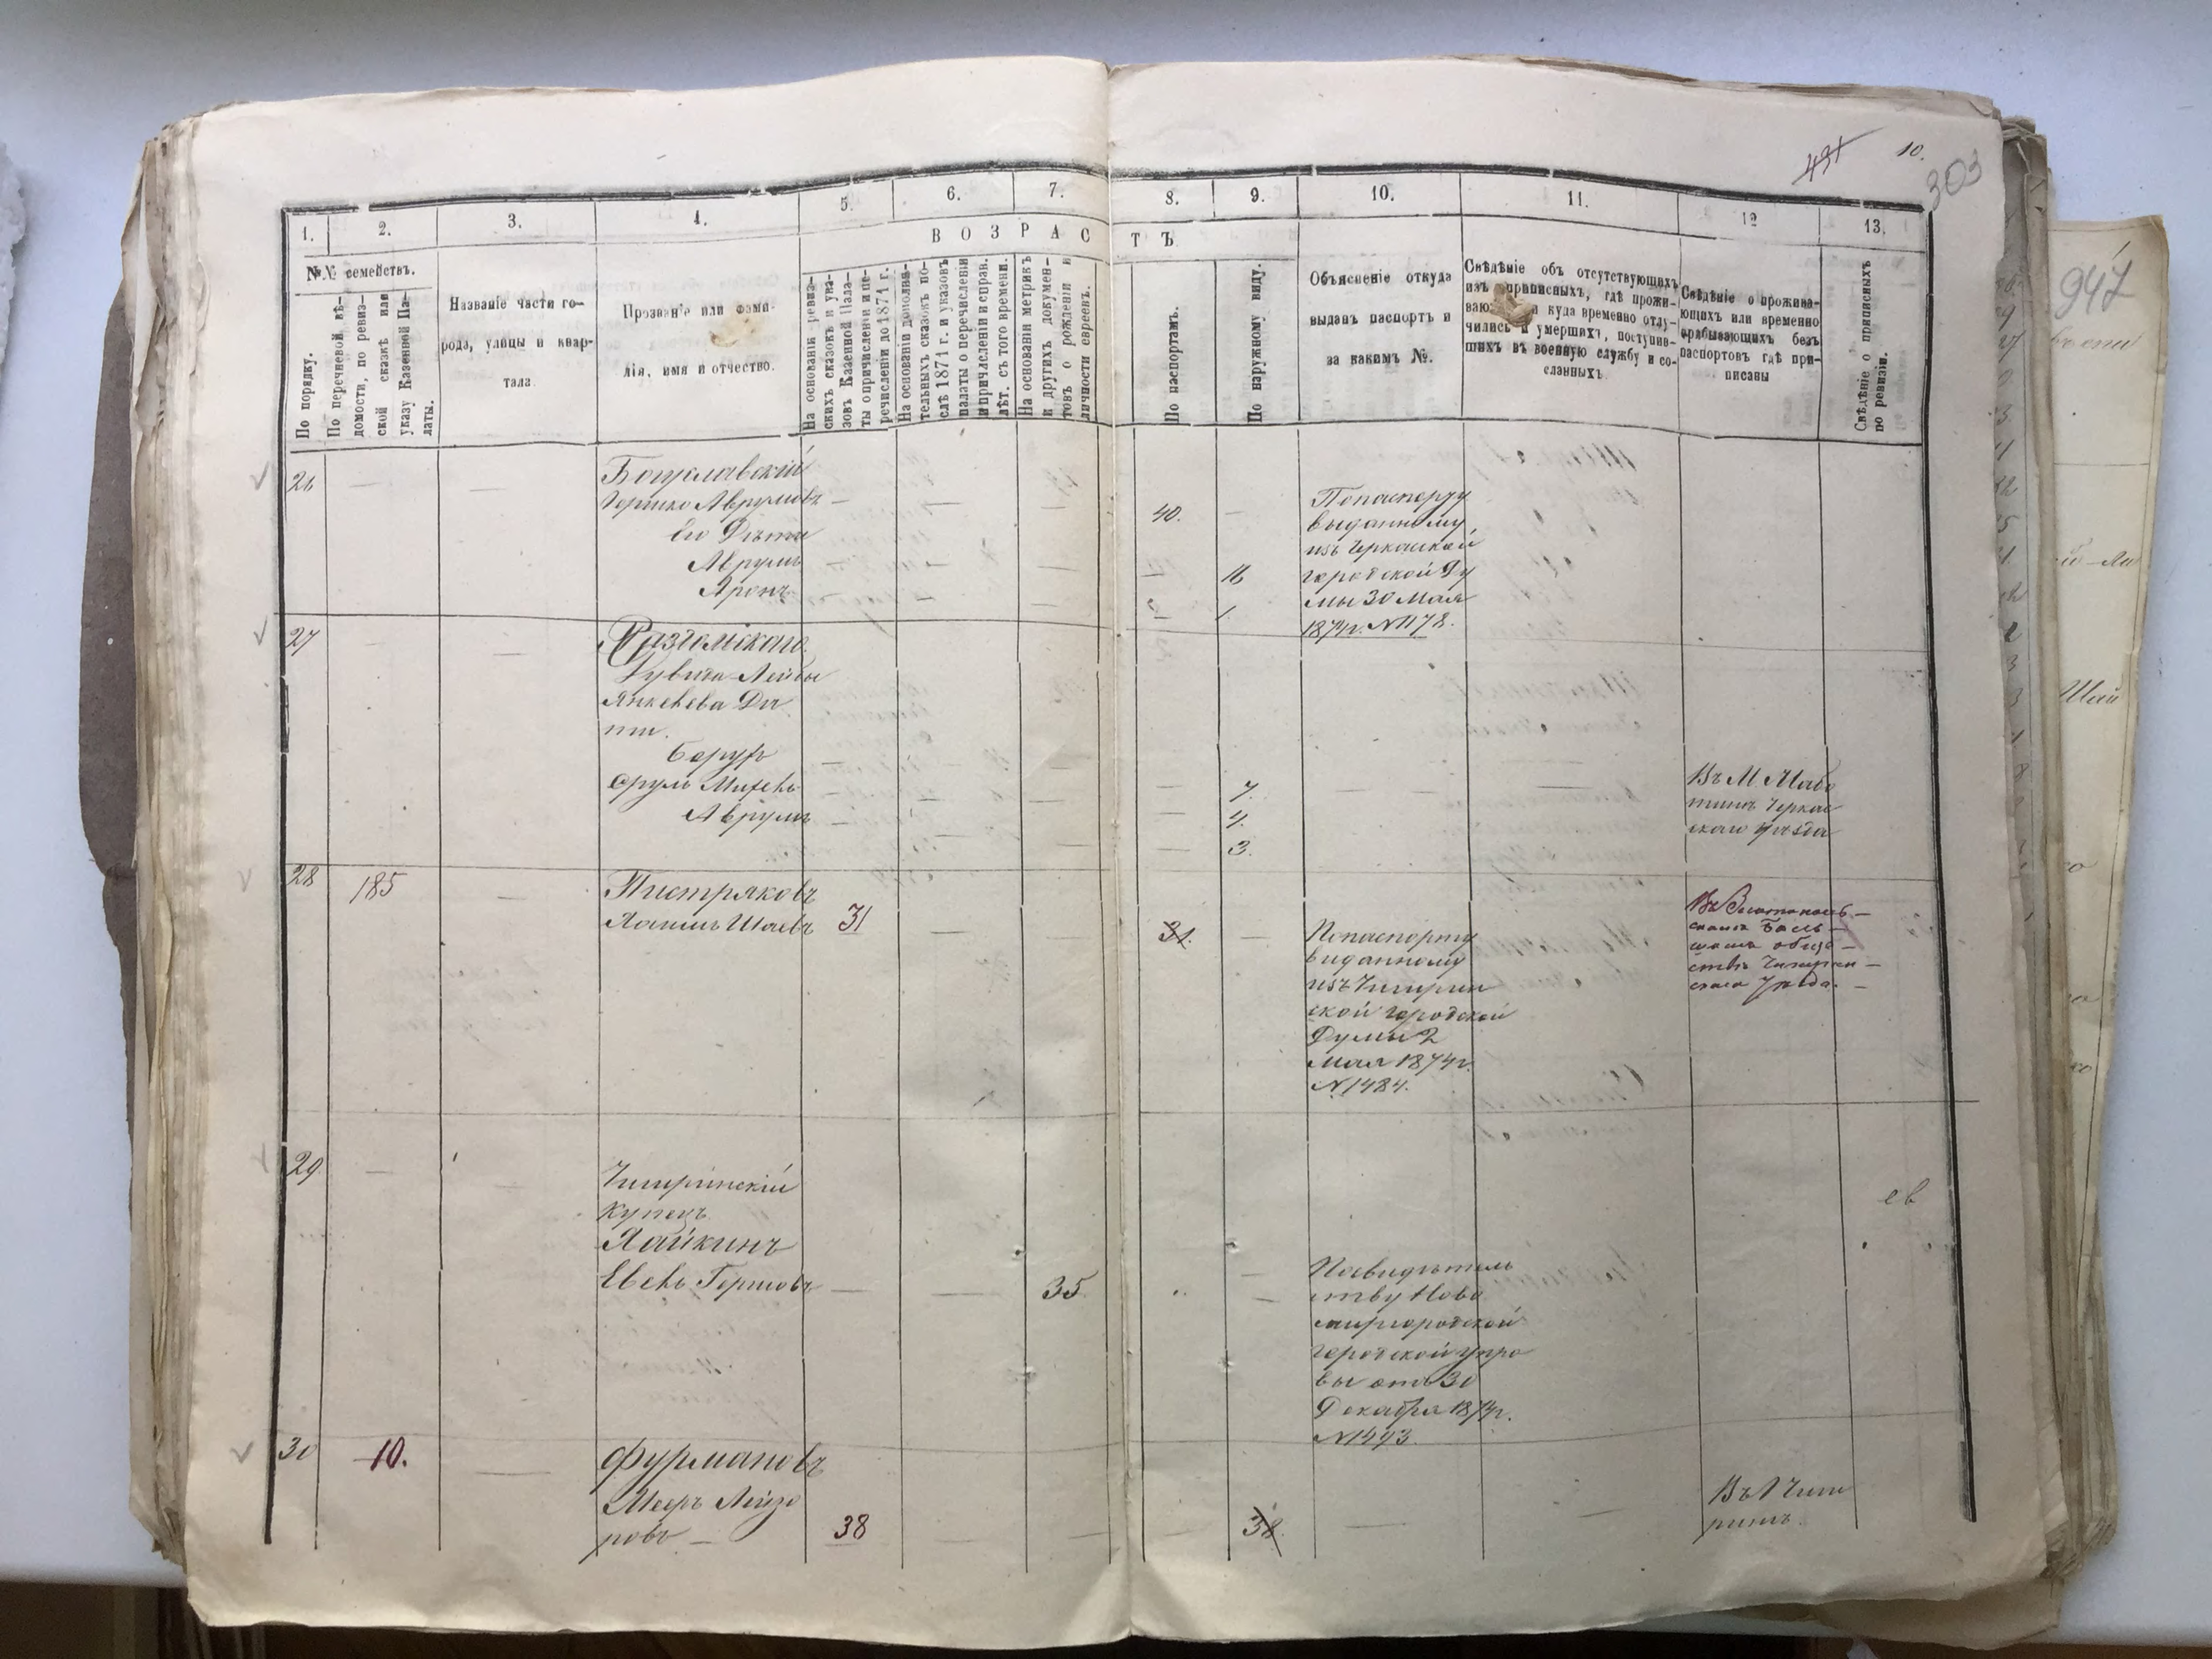 431
10.
303
1.
2.
3.
4.
5.
6.
7.
8.
9.
10.
11.
12
13.
ВОЗРАСТЪ
№№ семействъ.
По порядку.
По перечневой вѣ-
домости, по ревиз-
ской сказкѣ или
указу Казенной Па-
латы.
Названіе части го-
рода, улицы и квар-
тала
Прозваніе или фами-
лія, имя и отчество.
На основаніи ревиз-
скихъ сказокъ и ука-
зовъ Казенной Пала-
ты о причисленіи и пе-
речисленіи до 1871 г.
На основаніи дополни-
тельныхъ сказокъ по-
слѣ 1871 г. и указовъ
палаты о перечисленіи
и причисленіи и справ.
лѣт. съ того времени.
На основаніи метрикъ
и другихъ докумен-
товъ о рожденіи и
личности евреевъ.
По паспортамъ.
По наружному виду.
Объясненіе откуда
выданъ паспортъ и
за какимъ №.
Свѣдѣніе объ отсутствующихъ
изъ приписныхъ, гдѣ прожи-
ваю и куда временно отлу-
чились и умершихъ, поступив-
шихъ въ военную службу и со-
сланныхъ
Свѣдѣніе о прожива-
ющихъ или временно
пребывающихъ безъ
паспортовъ гдѣ при-
писаны
Свѣдѣніе о приписныхъ
по ревизіи.
26
Богуславскій
Гершко Аврумовъ
40.
Его Дѣти
Аврумъ
16
Аронъ
1.
Попаспорту
выданному
изъ Черкаской
городской Ду
мы 30 Мая
1874г. N1178.
27
Разголскаго
Дувида-Лейбы
Янкелева Дѣ
ти.
Берур
7.
Срулъ Михель
4.
Аврумъ
3.
Въ М. Мабо
тинъ Черкас
скаго уѣзда
28
185
Пистряковъ
Хаимъ Шаевъ
31
31.
Попаспорту
виданному
изъ Чигирин
ской городской
Думы 2
мая 1874г.
N1484.
обще-
ствѣ Чигирин-
скаго Уѣзда.
29
Чигиринскій
купецъ
Хайкинъ
Евель Гершовъ
35
Посвидѣтель
ству Ново
миргородской
городской упра
вы отъ 30
Декабря 1874г.
N1493.
ев
30
10.
Фурмановъ
Мееръ Лейзо
ровъ
38
38.
Въ г Чиги
ринѣ.
947